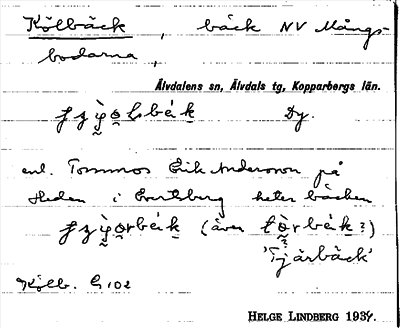 Kölbäck, bäck NV Mångs-
bodarna,
Älvdalens sn, Älvdals tg, Kopparbergs län.
Dy.
enl. Tommos Erik Andersson på
Heden i Evertsberg heter bäcken
(även
'Tjärbäck'
Kölb. G 102
HELGE LINDBERG 1934.